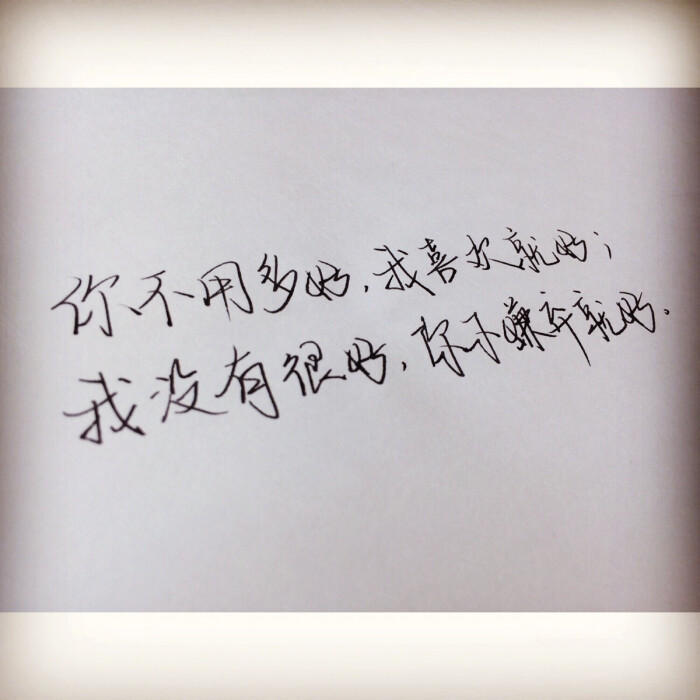 你不用多好，我喜欢就好；
我没有很好，你不嫌弃就好．